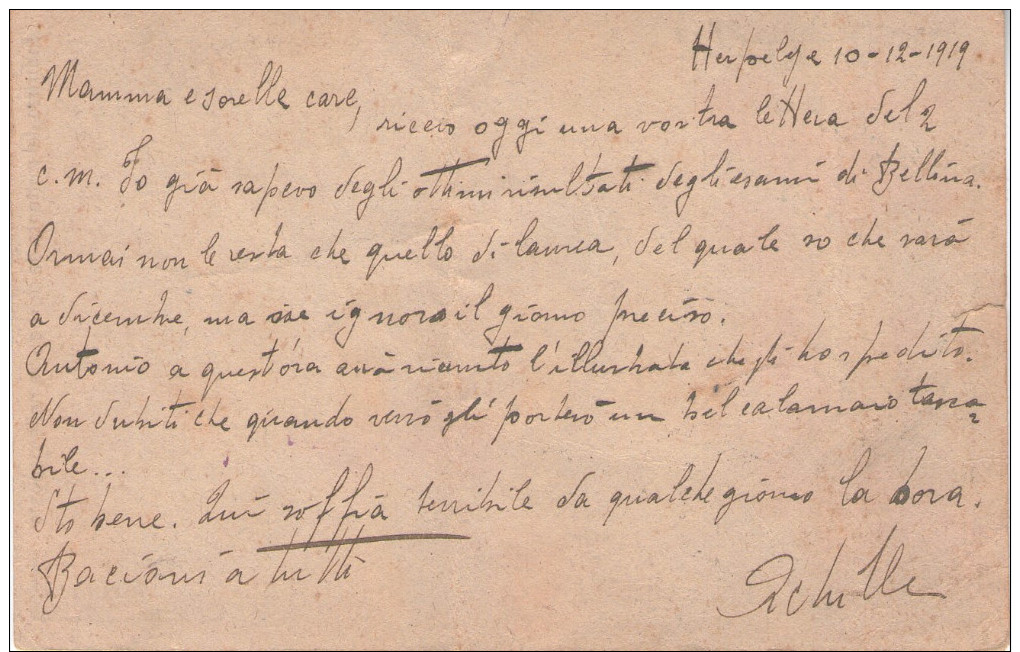 Herpelje 10-12-1919
Mamma e sorelle care,
ricevo oggi una vostra lettera del 2
c.m. Io già sapevo degli ottimi risultati degli esami di Bellina.
Ormai non le resta che quello di laurea, del quale so che sarà
a dicembre, ma ignoro il giorno preciso.
Antonio a quest'ora avrà ricevuto l'illustrata che gli ho spedito.
Non dubiti che quando verrò gli porterò un bel calamaio tasca-
bile...
Sto bene. Qui soffia terribile da qualche giorno la bora.
Bacioni a tutti
Achille